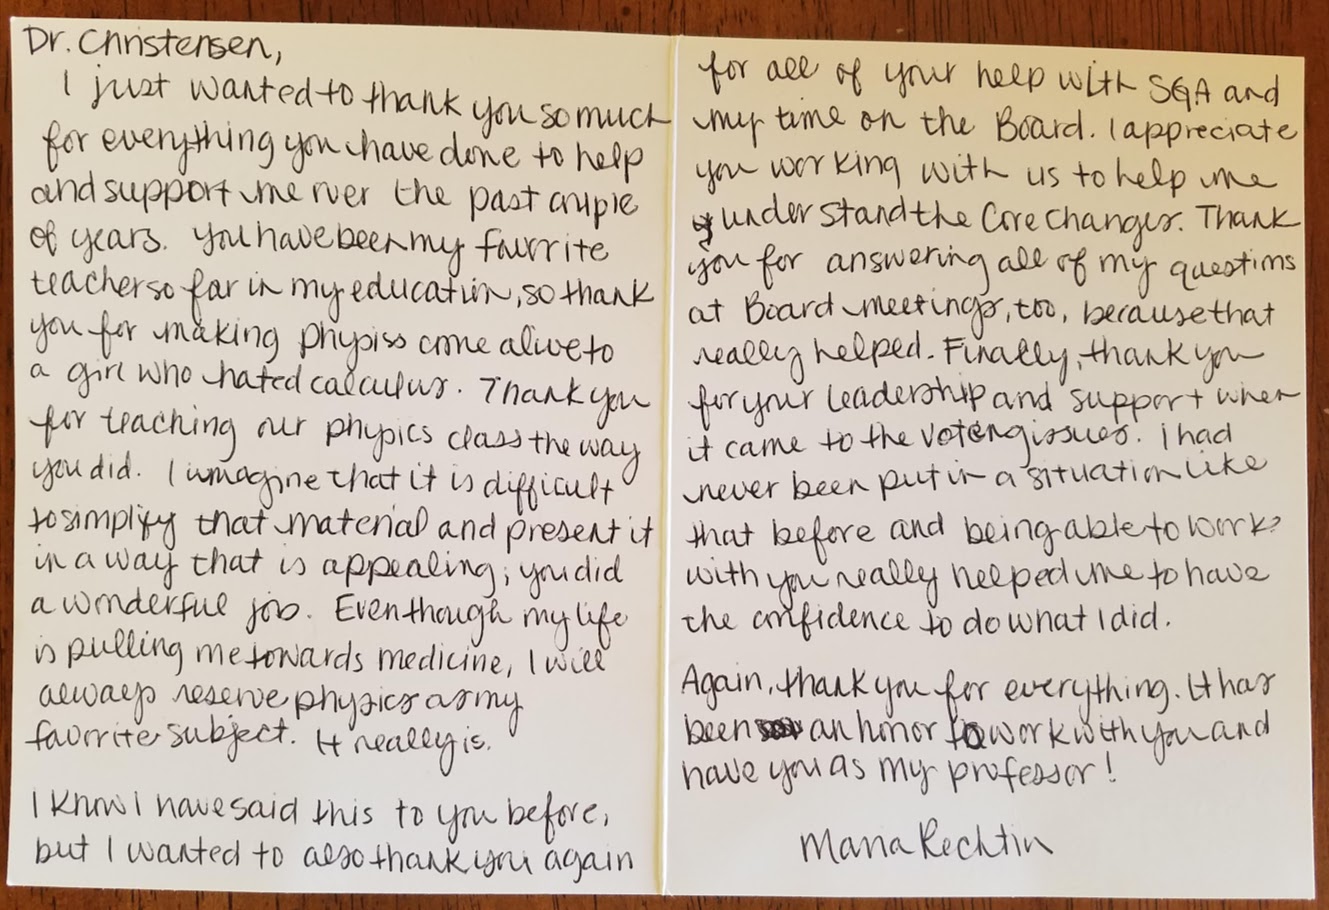 Dr. Christensen,
I just wanted to thank you so much
for everything you have done to help
and support me over the past couple
of years. You have been my favorite
teacher so far in my education, so thank
you for making physiss come alive to
a girl who hated calculus. Thank you
for teaching our physics class the way
you did. I imagine that it is difficult
to simplify that material and present it
in a way that is appealing; you did
a wonderful job. Even though my life
is pulling me towards medicine, I will
always reserve physics as my
favorite subject. It really is.
I know I have said this to you before,
but I wanted to also thank you again
for all of your help with SGA and
my time on the Board. I appreciate
you working with us to help me
understand the Core changes. Thank
you for answering all of my questions
at Board meetings, too, because that
really helped. Finally, thank you
for your leadership and support when
it came to the issues. I had
never been put in a situation like
that before and being able to work
with you really helped me to have
the confidence to do what I did.
Again, thank you for everything. It has
been an honor to work with you and
have you as my professor!
Maria Rechtin